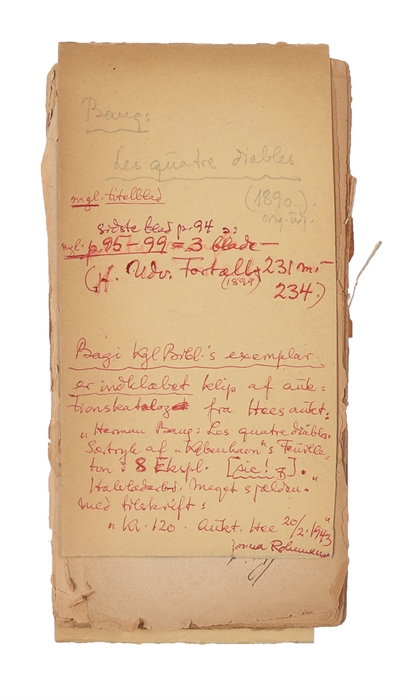 Bang:
Les quatre diables
(1890.)
orig. udg.
mgl. titelblad
sidste blad p. 94 ɔ:
mgl: p. 95 – 99 = 3 blade –
(jf. Udv. Fortæll. 231 m.
(1899)
234.)
Bagi Kgl Bibl.'s exemplar
er indklæbet klip af auk=
tionskatalog fra Hees aukt:
"Herman Bang: Les quatre diables.
Særtryk af "København"s Feuille-
ton i 8 Ekspl. [sic! ]."
Halvlæderbd. Meget sjælden.
med tilskrift:
"Kr. 120. Aukt. Hee 20/2. 1943"